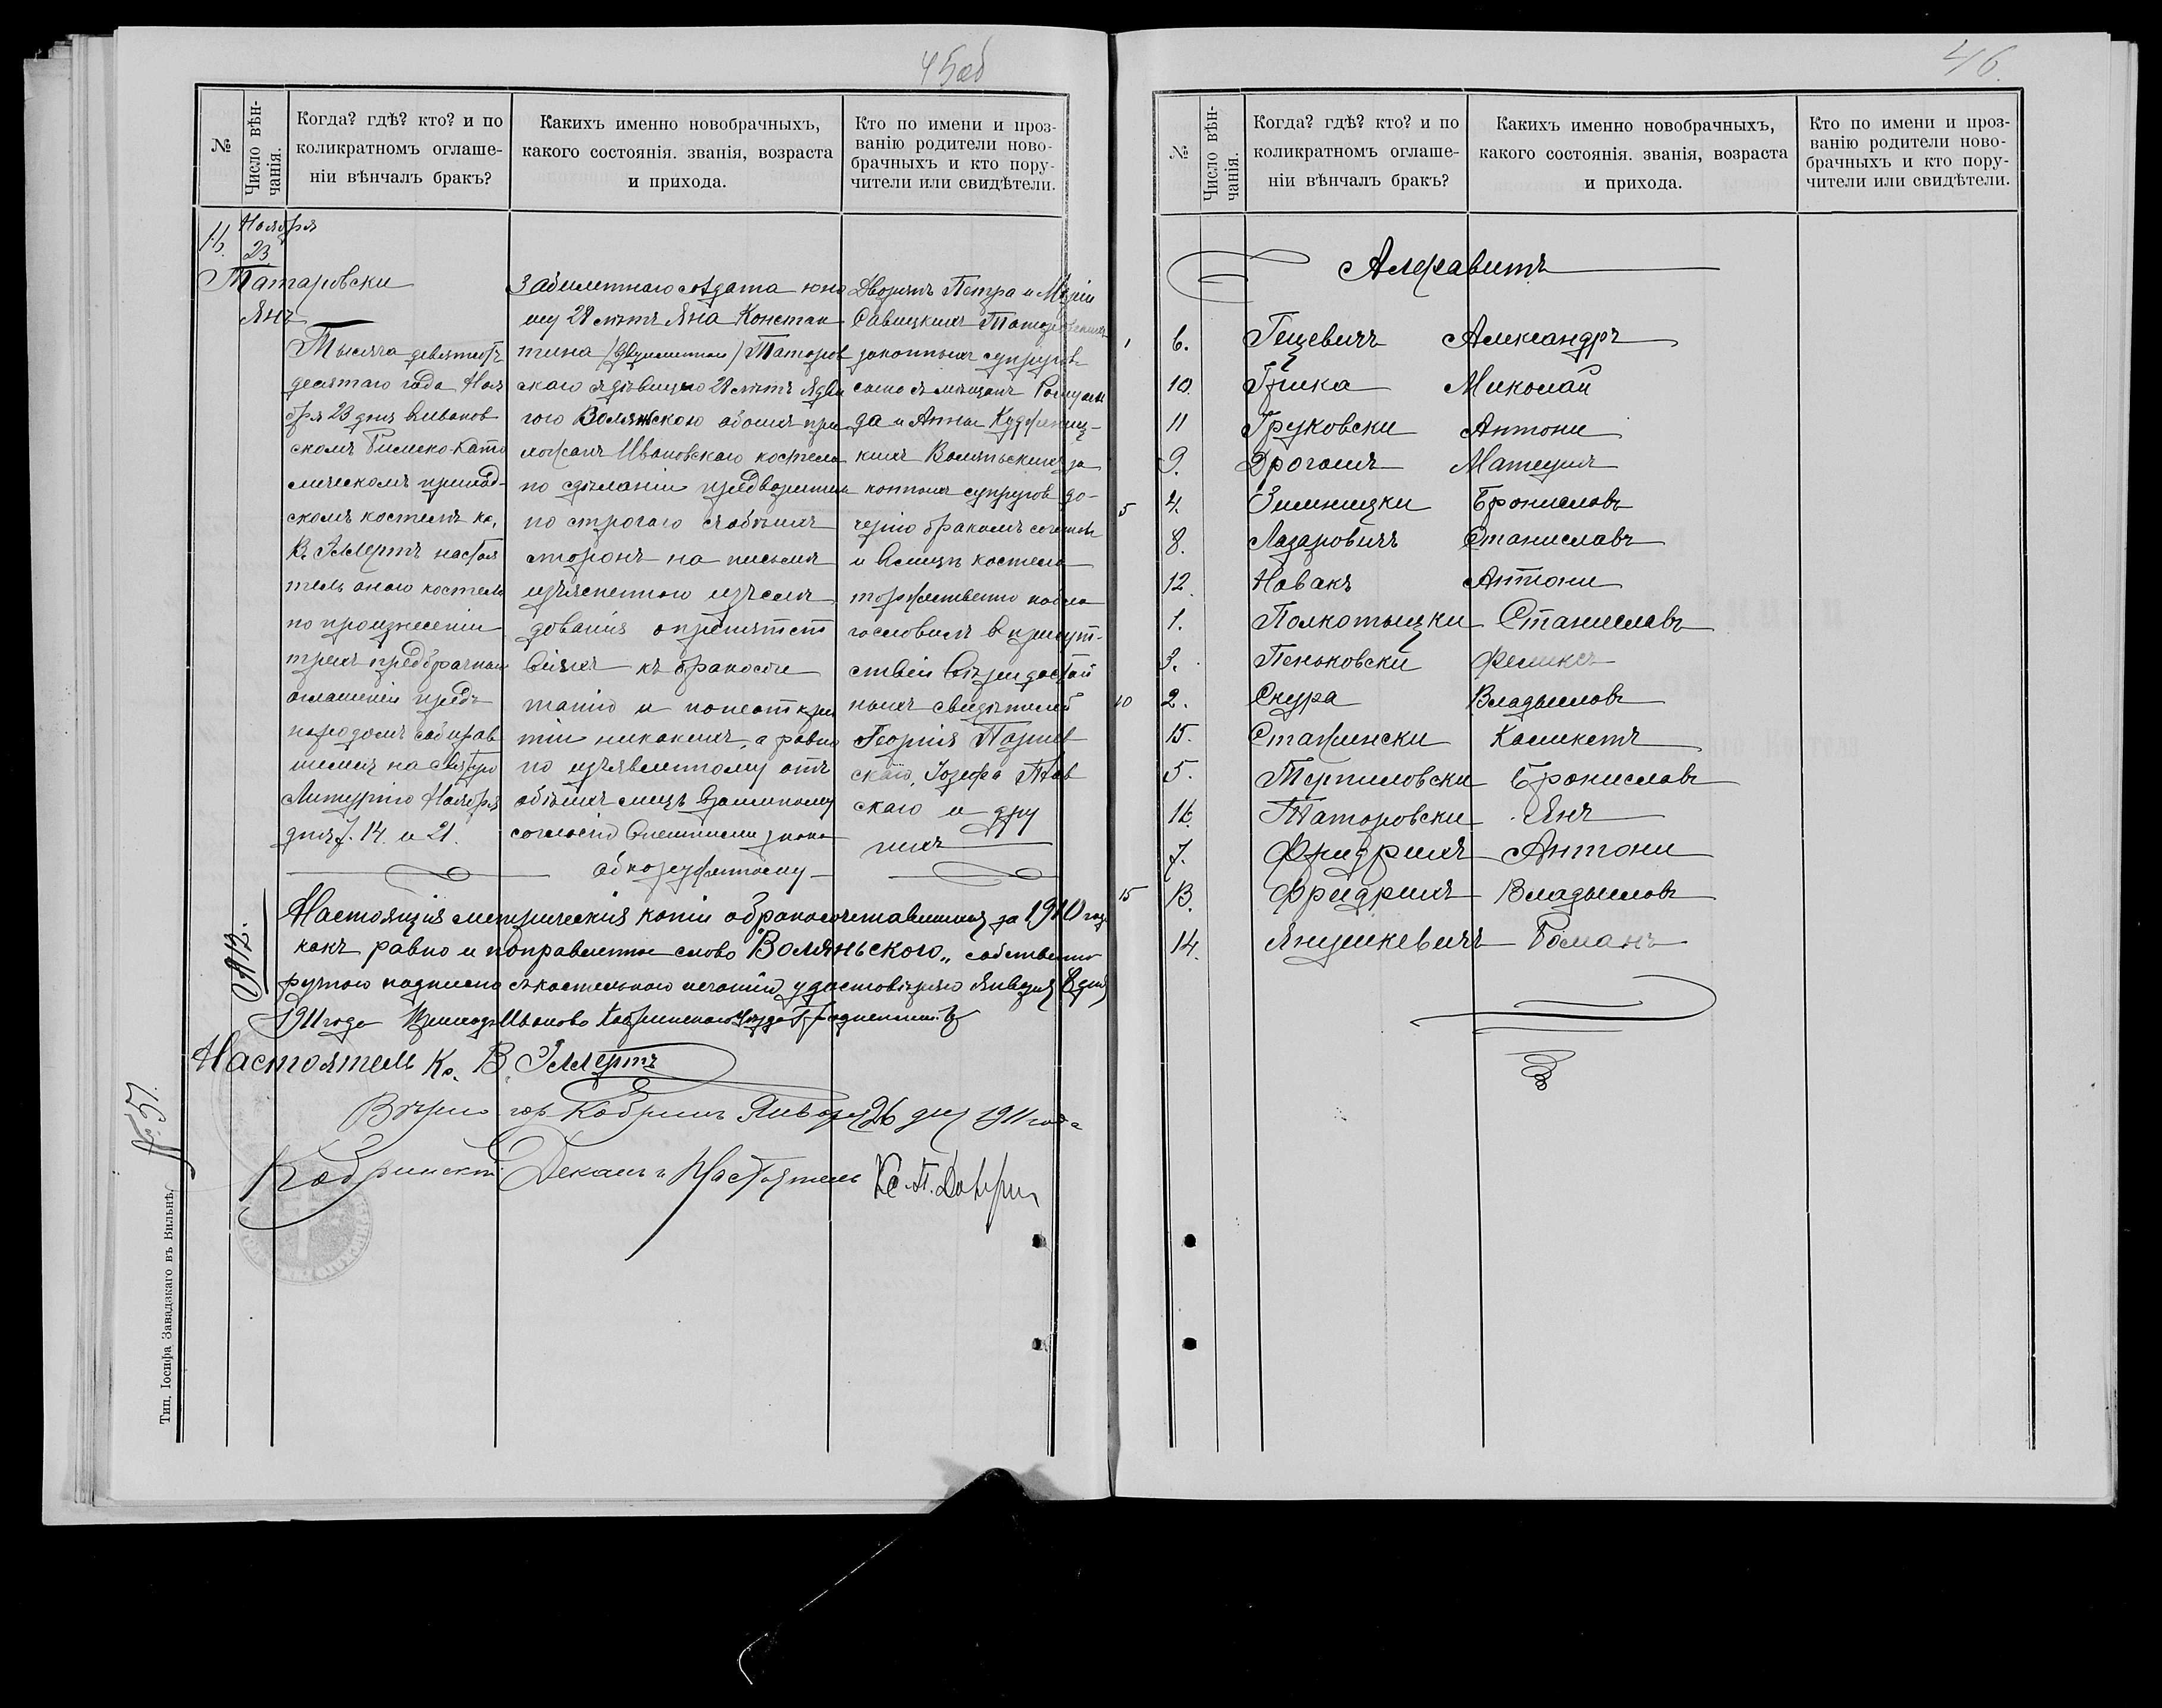 45об
№
Число вѣн-
чанія.
Когда? гдѣ? кто? и по
коликратномъ оглаше-
ніи вѣнчалъ бракъ?
Какихъ именно новобрачныхъ,
какого состоянія. званія, возраста
и прихода.
Кто по имени и проз-
ванію родители ново-
брачныхъ и кто пору-
чители или свидѣтели.
Ноября
16.
23.
Татаровски
Янъ
Тысяча девятьсотъ
десятаго года Ноя
бря 23 дня въ Иванов
скомъ Римско-Като
лическомъ приход-
скомъ костелѣ Кс.
В. Эллертъ настоя
тель онаго костела
по произнесеніи
трехъ предбрачныхъ
оглашеній предъ
народомъ собрав
шимся на Святую
Литургію Ноября
дня 7. 14. и 21.
Забилетнаго солдата юно
шу 28 лѣтъ Яна Констан
тина (двуименнаго) Татаров
скаго съ дѣвицею 21 лѣтъ Ядви
гою Волянскою обоихъ при
хожанъ Ивановскаго костела
по сдѣланіи предваритель
но строгаго съ обѣихъ
сторонъ на письмѣ
изъясненнаго изслѣ
дованія о препятст
віяхъ къ бракосоче
танію и по неоткры
тіи никакихъ, а равно
по изъявленному отъ
обѣихъ лицъ взаимному
согласію внѣшними знака
обнаруженному
Дворянъ Петра и Маріи
Савицкихъ Татаровскихъ
законныхъ супруговъ
сына съ мѣщанъ Ромуаль
да и Анны Кудржиц-
кихъ Волянскихъ за
конныхъ супруговъ до-
черію бракомъ сочеталъ
и въ лицѣ костела
торжественно побла
гословилъ въ присут-
ствіи вѣры достой
ныхъ свидѣтелей
Георгія
скаго, Іозефа
скаго и дру
гихъ
Настоящія метрическія копіи о бракосочетавшихся за 1910 годъ
какъ равно и поправленное слово "Воляньского" собственно
ручною подписью съ костельною печатію удостовѣряю Января 8 дня
1911 года Приходъ Иваново Кобринскаго Уѣзда Гродненской Г.
Настоятель Кс. В. Эллертъ
Вѣрно гор. Кобринъ Января 26 дня 1911 года
Кобринскій Деканъ и Настоятель Кс. П.
№ 12.
№ 57.
Тип. Іосифа Завадзкаго въ Вильнѣ.
46.
№
Число вѣн-
чанія.
Когда? гдѣ? кто? и по
коликратномъ оглаше-
ніи вѣнчалъ бракъ?
Какихъ именно новобрачныхъ,
какого состоянія. званія, возраста
и прихода.
Кто по имени и проз-
ванію родители ново-
брачныхъ и кто пору-
чители или свидѣтели.
Алфавитъ
1 6. Гецевичъ Александръ
10. Грика Миколай
11 Груковски Антони
9. Дрогошъ Матеушъ
5 4. Зимницки Брониславъ
8. Лазаровичъ Станиславъ
12. Новакъ Антони
1. Полкотыцки Станиславъ
3. Пеньковски Феликсъ
10 2. Скура Владыславъ
15. Стажински Каликстъ
5. Терпиловски Брониславъ
16. Татаровски Янъ
7. Фридрихъ Антони
15 13. Фридрихъ Владыславъ
14. Янушкевичъ Романъ